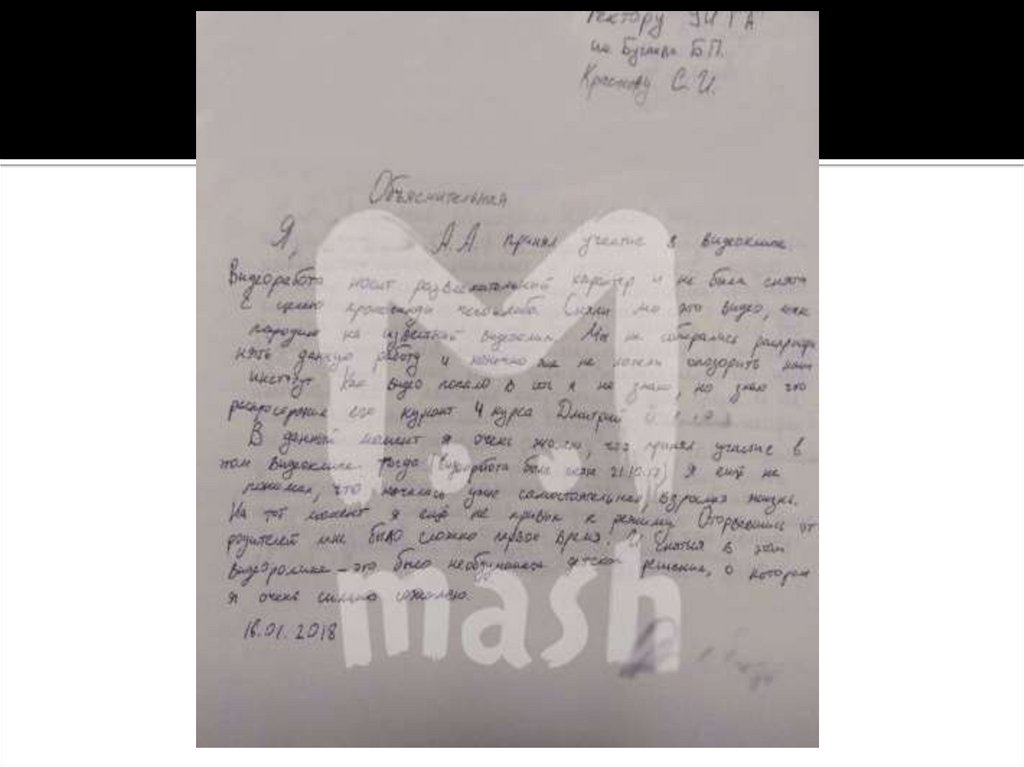 Ректору УИ ГА
им. Бугаева Б.П.
Краснову С.И.
Объяснительная
Я, А.А. принял участие в видеоклипе.
Видеоработа носит развлекательный характер и не была снята
с целью пропаганды чего-либо. Сняли мы это видео, как
пародию на известный видеоклип. Мы не собирались распростра
нять данную работу и конечно же не хотели опозорить наш
институт. Как видео попало в сеть я не знаю, но знаю что
распространил его курсант 4 курса Дмитрий
В данный момент я очень жалею, что принял участие в
этом видеоклипе. Тогда (видеоработа была снята 21.10.17) я ещё не
понимал, что началась уже самостоятельная, взрослая жизнь.
На тот момент я ещё не привык к режиму. Оторвавшись от
родителей мне было сложно первое время. И сняться в этом
видеоролике – это было необдуманное детское решение, о котором
я очень сильно сожалею.
16.01.2018
mash